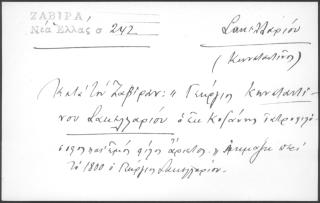 ΖΑΒΙΡΑ,
Νέα Ἑλλάς σ 242
Σακελλαρίου
(Κωνσταντῖνος)
Κατὰ τὸν Ζαβίραν: "Γεώργιος Κωνσταντί-
νου Σακελλαρίου ὁ ἐκ Κοζάνης ἰατροφιλό-
σοφος καὶ ἐμὸς φίλος ἄριστος." Ἤκμαζε περὶ
τὸ 1800 ὁ Γεώργιος Σακελλαρίου.